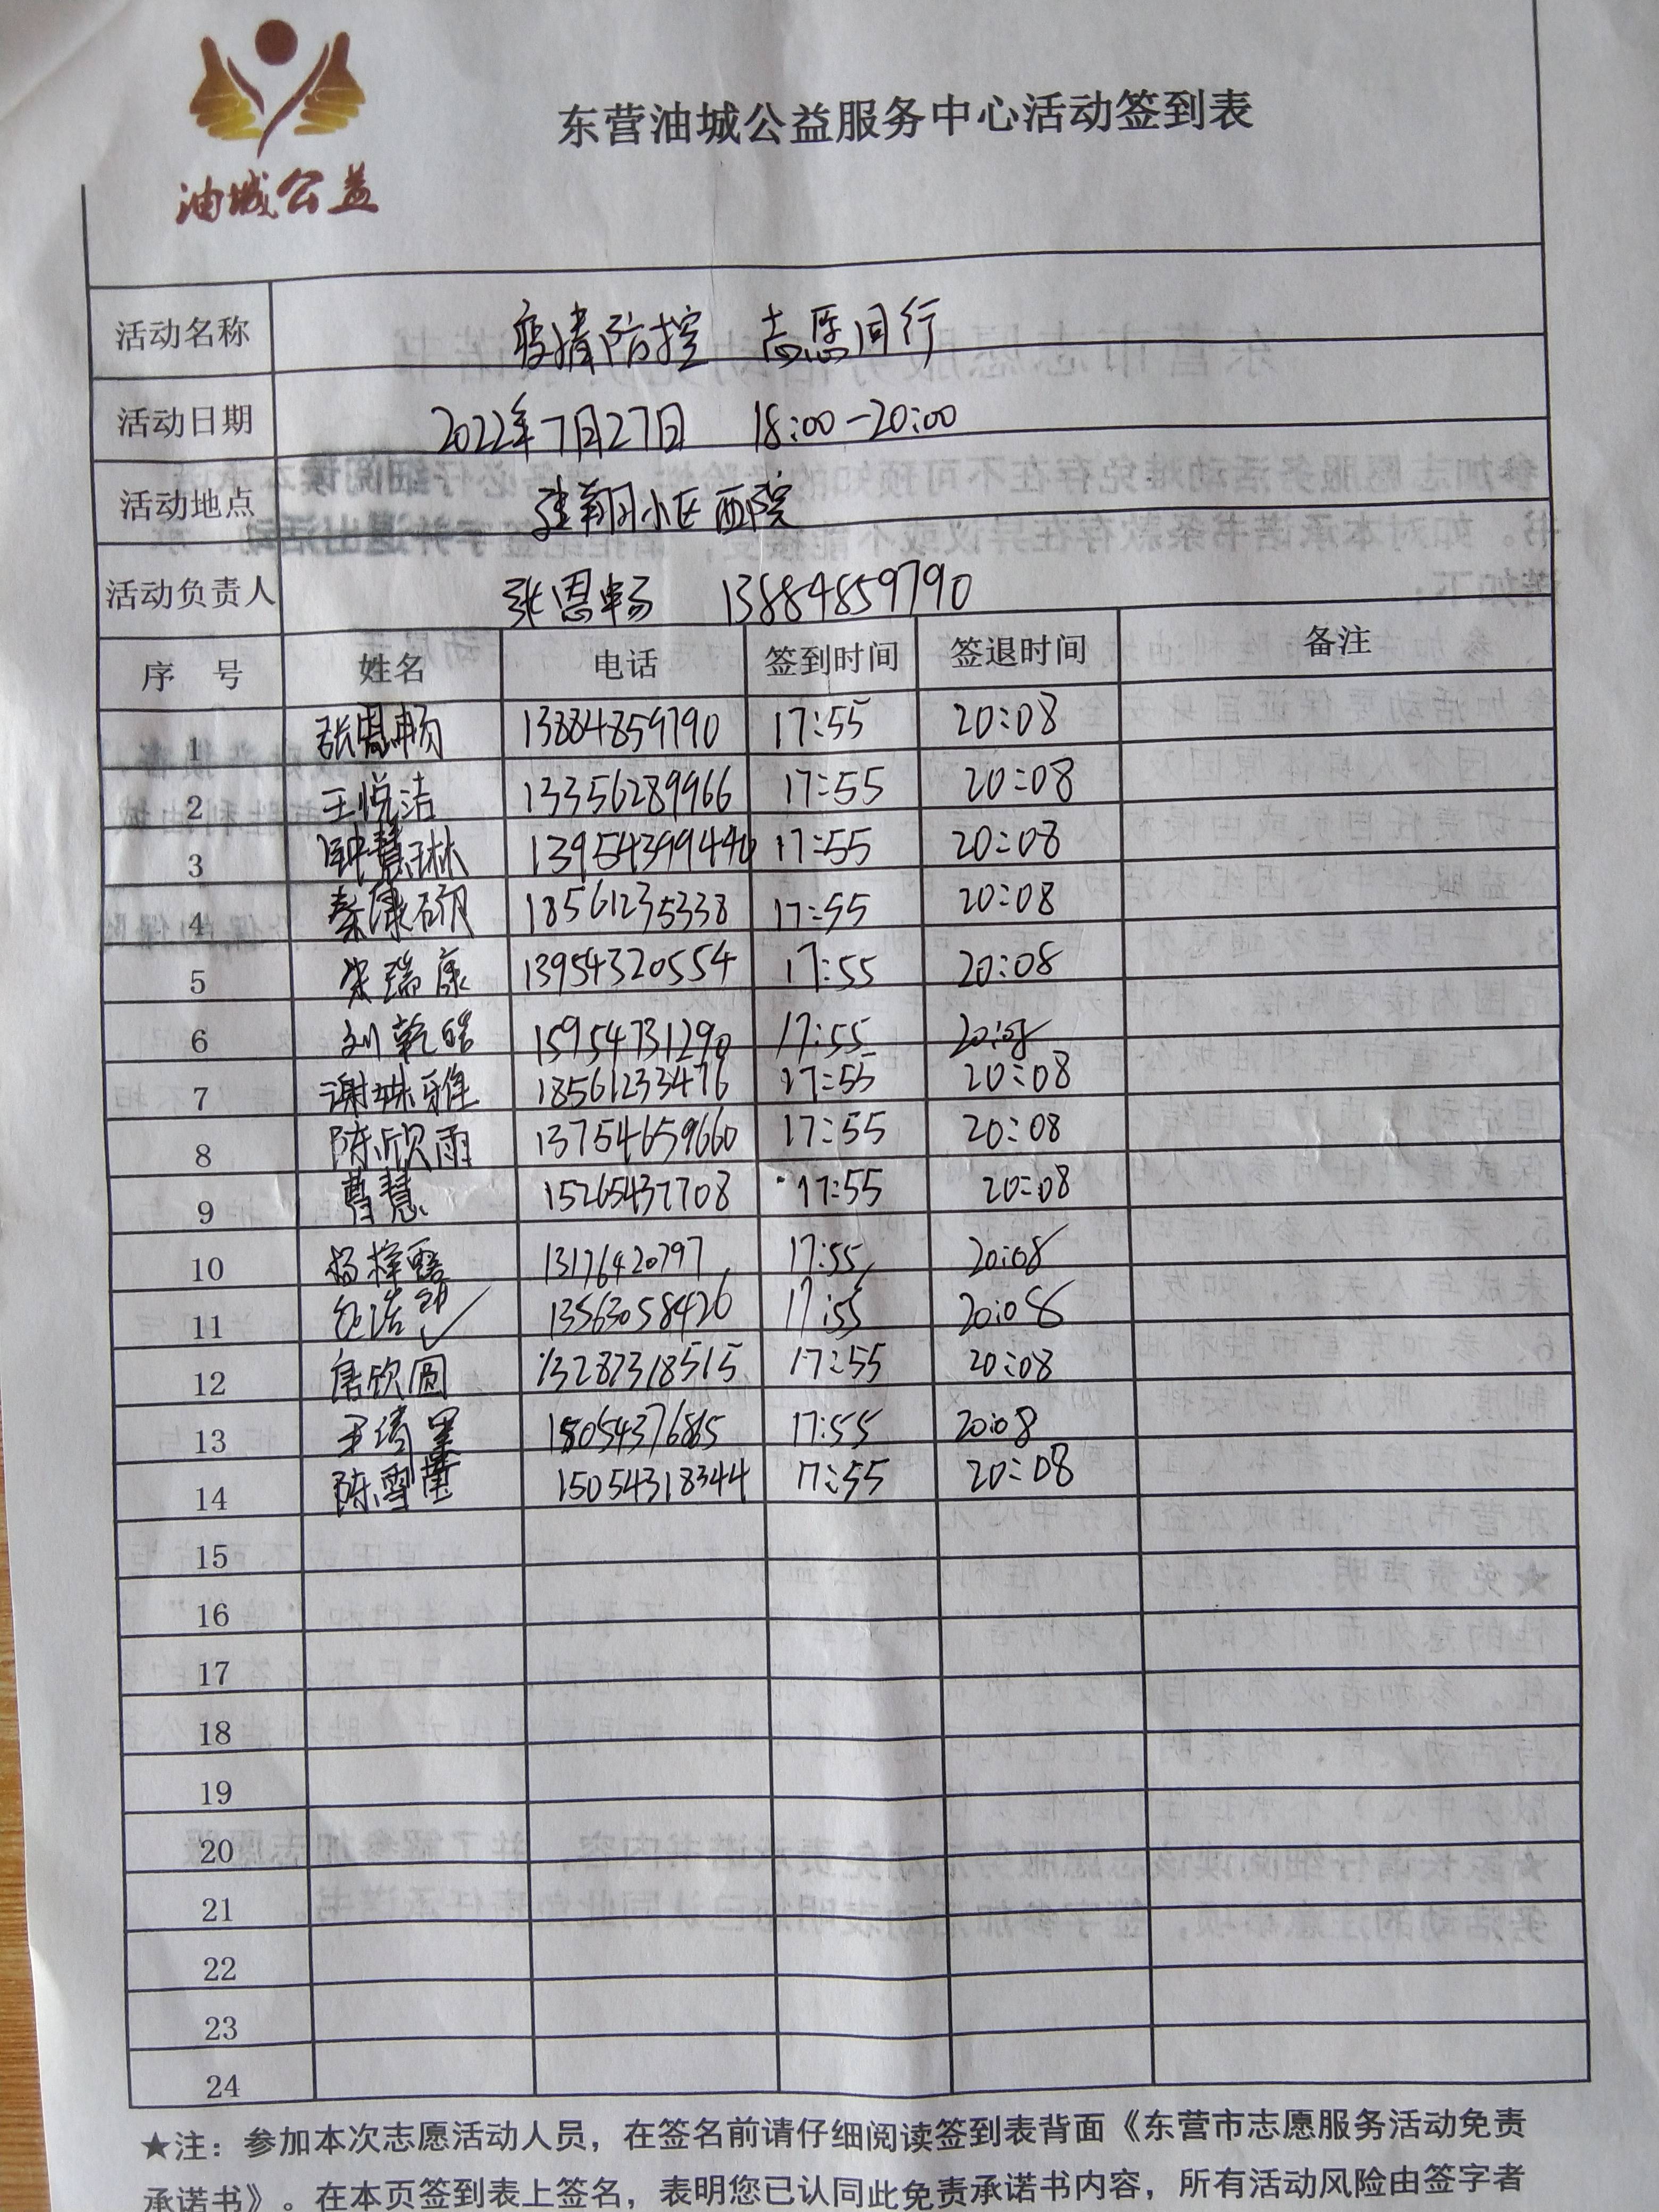 油城公益
东营油城公益服务中心活动签到表
活动名称 疫情防控 志愿同行
活动日期 2022年7月27日 18:00-20:00
活动地点 小区西院
活动负责人 张恩畅 13884859790
序 号 姓名 电话 签到时间 签退时间 备注
1 张恩畅 13884859790 17:55 20:08
2 王悦洁 13356289966 17:55 20:08
3 钟慧琳 17:55 20:08
4 秦康硕 18561235338 17:55 20:08
5 宋瑞康 13954320554 17:55 20:08
6 刘乾皓 15954731290 17:55 20:08
7 谢姝雅 18561233476 17:55 20:08
8 陈欣雨 13754659660 17:55 20:08
9 曹慧 15265437708 17:55 20:08
10 杨梓露 13176420797 17:55 20:08
11 13563058426 17:55 20:08
12 唐欣圆 13287318515 17:55 20:08
13 17:55 20:08
14 陈雪莹 15054318344 17:55 20:08
15
16
17
18
19
20
21
22
23
24
★注：参加本次志愿活动人员，在签名前请仔细阅读签到表背面《东营市志愿服务活动免责
承诺书》。在本页签到表上签名，表明您已认同此免责承诺书内容，所有活动风险由签字者